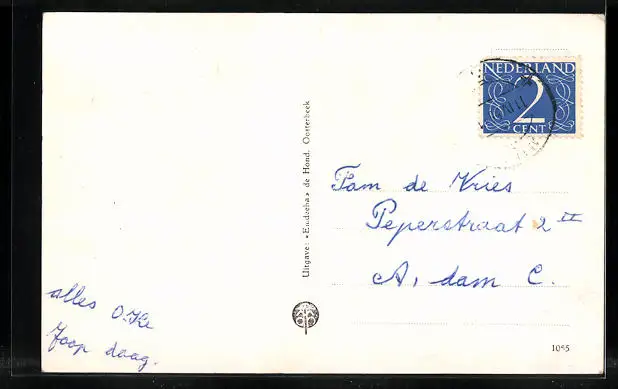 NEDERLAND
2
CENT
Uitgave: «Eudzeha» de Hond. Oosterbeek
Fam de Vries
Peperstraat 2 II
A, dam C.
alles O.Ke
Joop daag.
1055